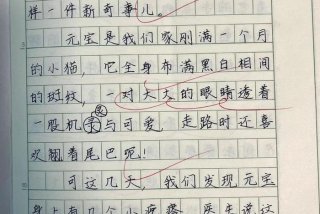 样一件新奇事儿。
元宝是我们家刚满一个月
的小猫，它全身布满黑白相间
的斑纹，一对大大的眼睛透着
一股机灵与可爱，走路时还喜
欢翘着尾巴呢！
可这几天，我们发现元宝
身上有几个小疙瘩，医生说这